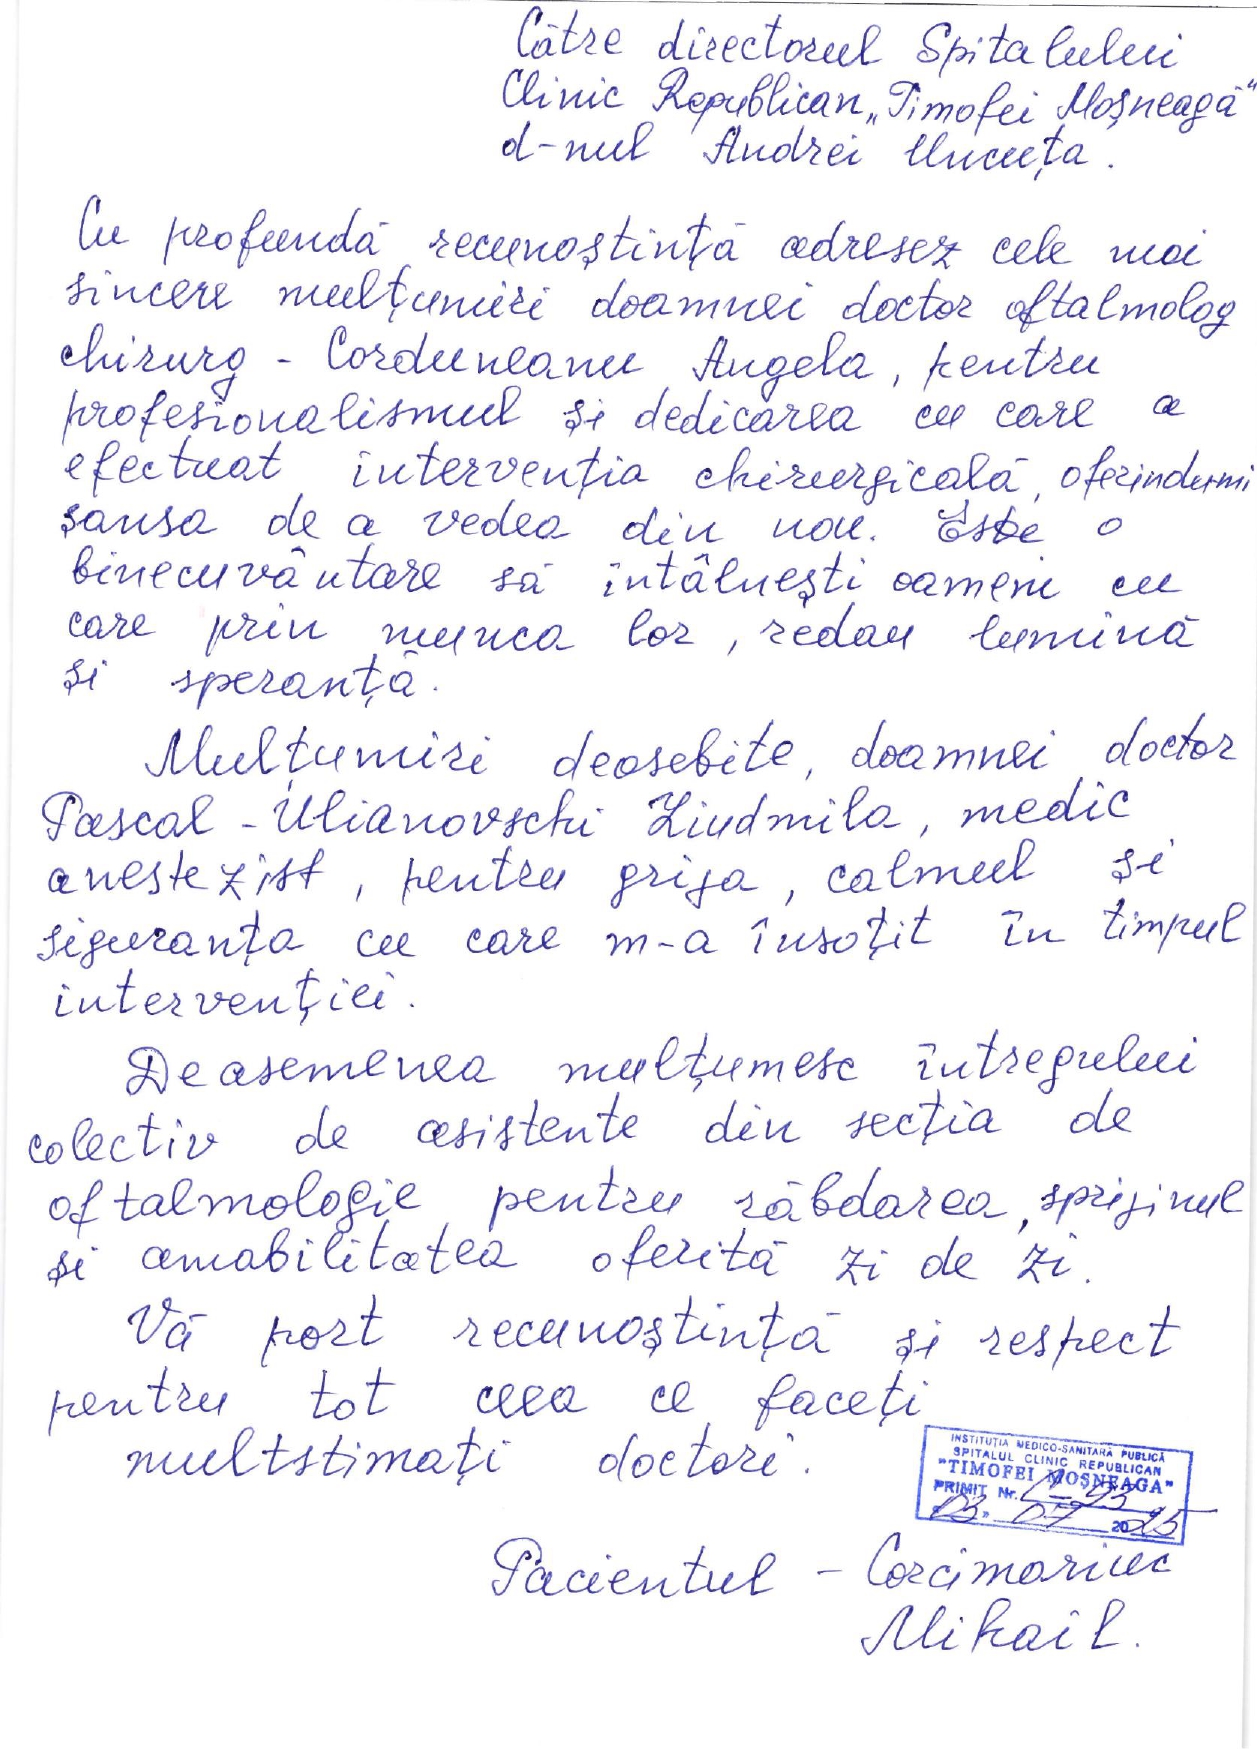 Către directorul Spitalului
Clinic Republican „Timofei Moșneagă“
d-nul Andrei Uncuța.
Cu profundă recunoștință adresez cele mai
sincere mulțumiri doamnei doctor oftalmolog
chirurg - Corduneanu Angela, pentru
profesionalismul și dedicarea cu care a
efectuat intervenția chirurgicală, oferindumi
șansa de a vedea din nou. Este o
binecuvântare să întâlnești oameni cu
care prin munca lor, redau lumină
și speranță.
Mulțumiri deosebite, doamnei doctor
Pascal - Ulianovschi Liudmila, medic
anestezist, pentru grija, calmul și
siguranța cu care m-a însoțit în timpul
intervenției.
Deasemenea mulțumesc întregului
colectiv de asistente din secția de
oftalmologie pentru răbdarea, sprijinul
și amabilitatea oferită zi de zi.
Vă port recunoștință și respect
pentru tot ceea ce faceți
multstimați doctori.
INSTITUȚIA MEDICO-SANITARĂ PUBLICĂ
SPITALUL CLINIC REPUBLICAN
"TIMOFEI MOȘNEAGA"
PRIMIT Nr.
03 " 07 2025
Pacientul - Corcimariuc
Mihail.